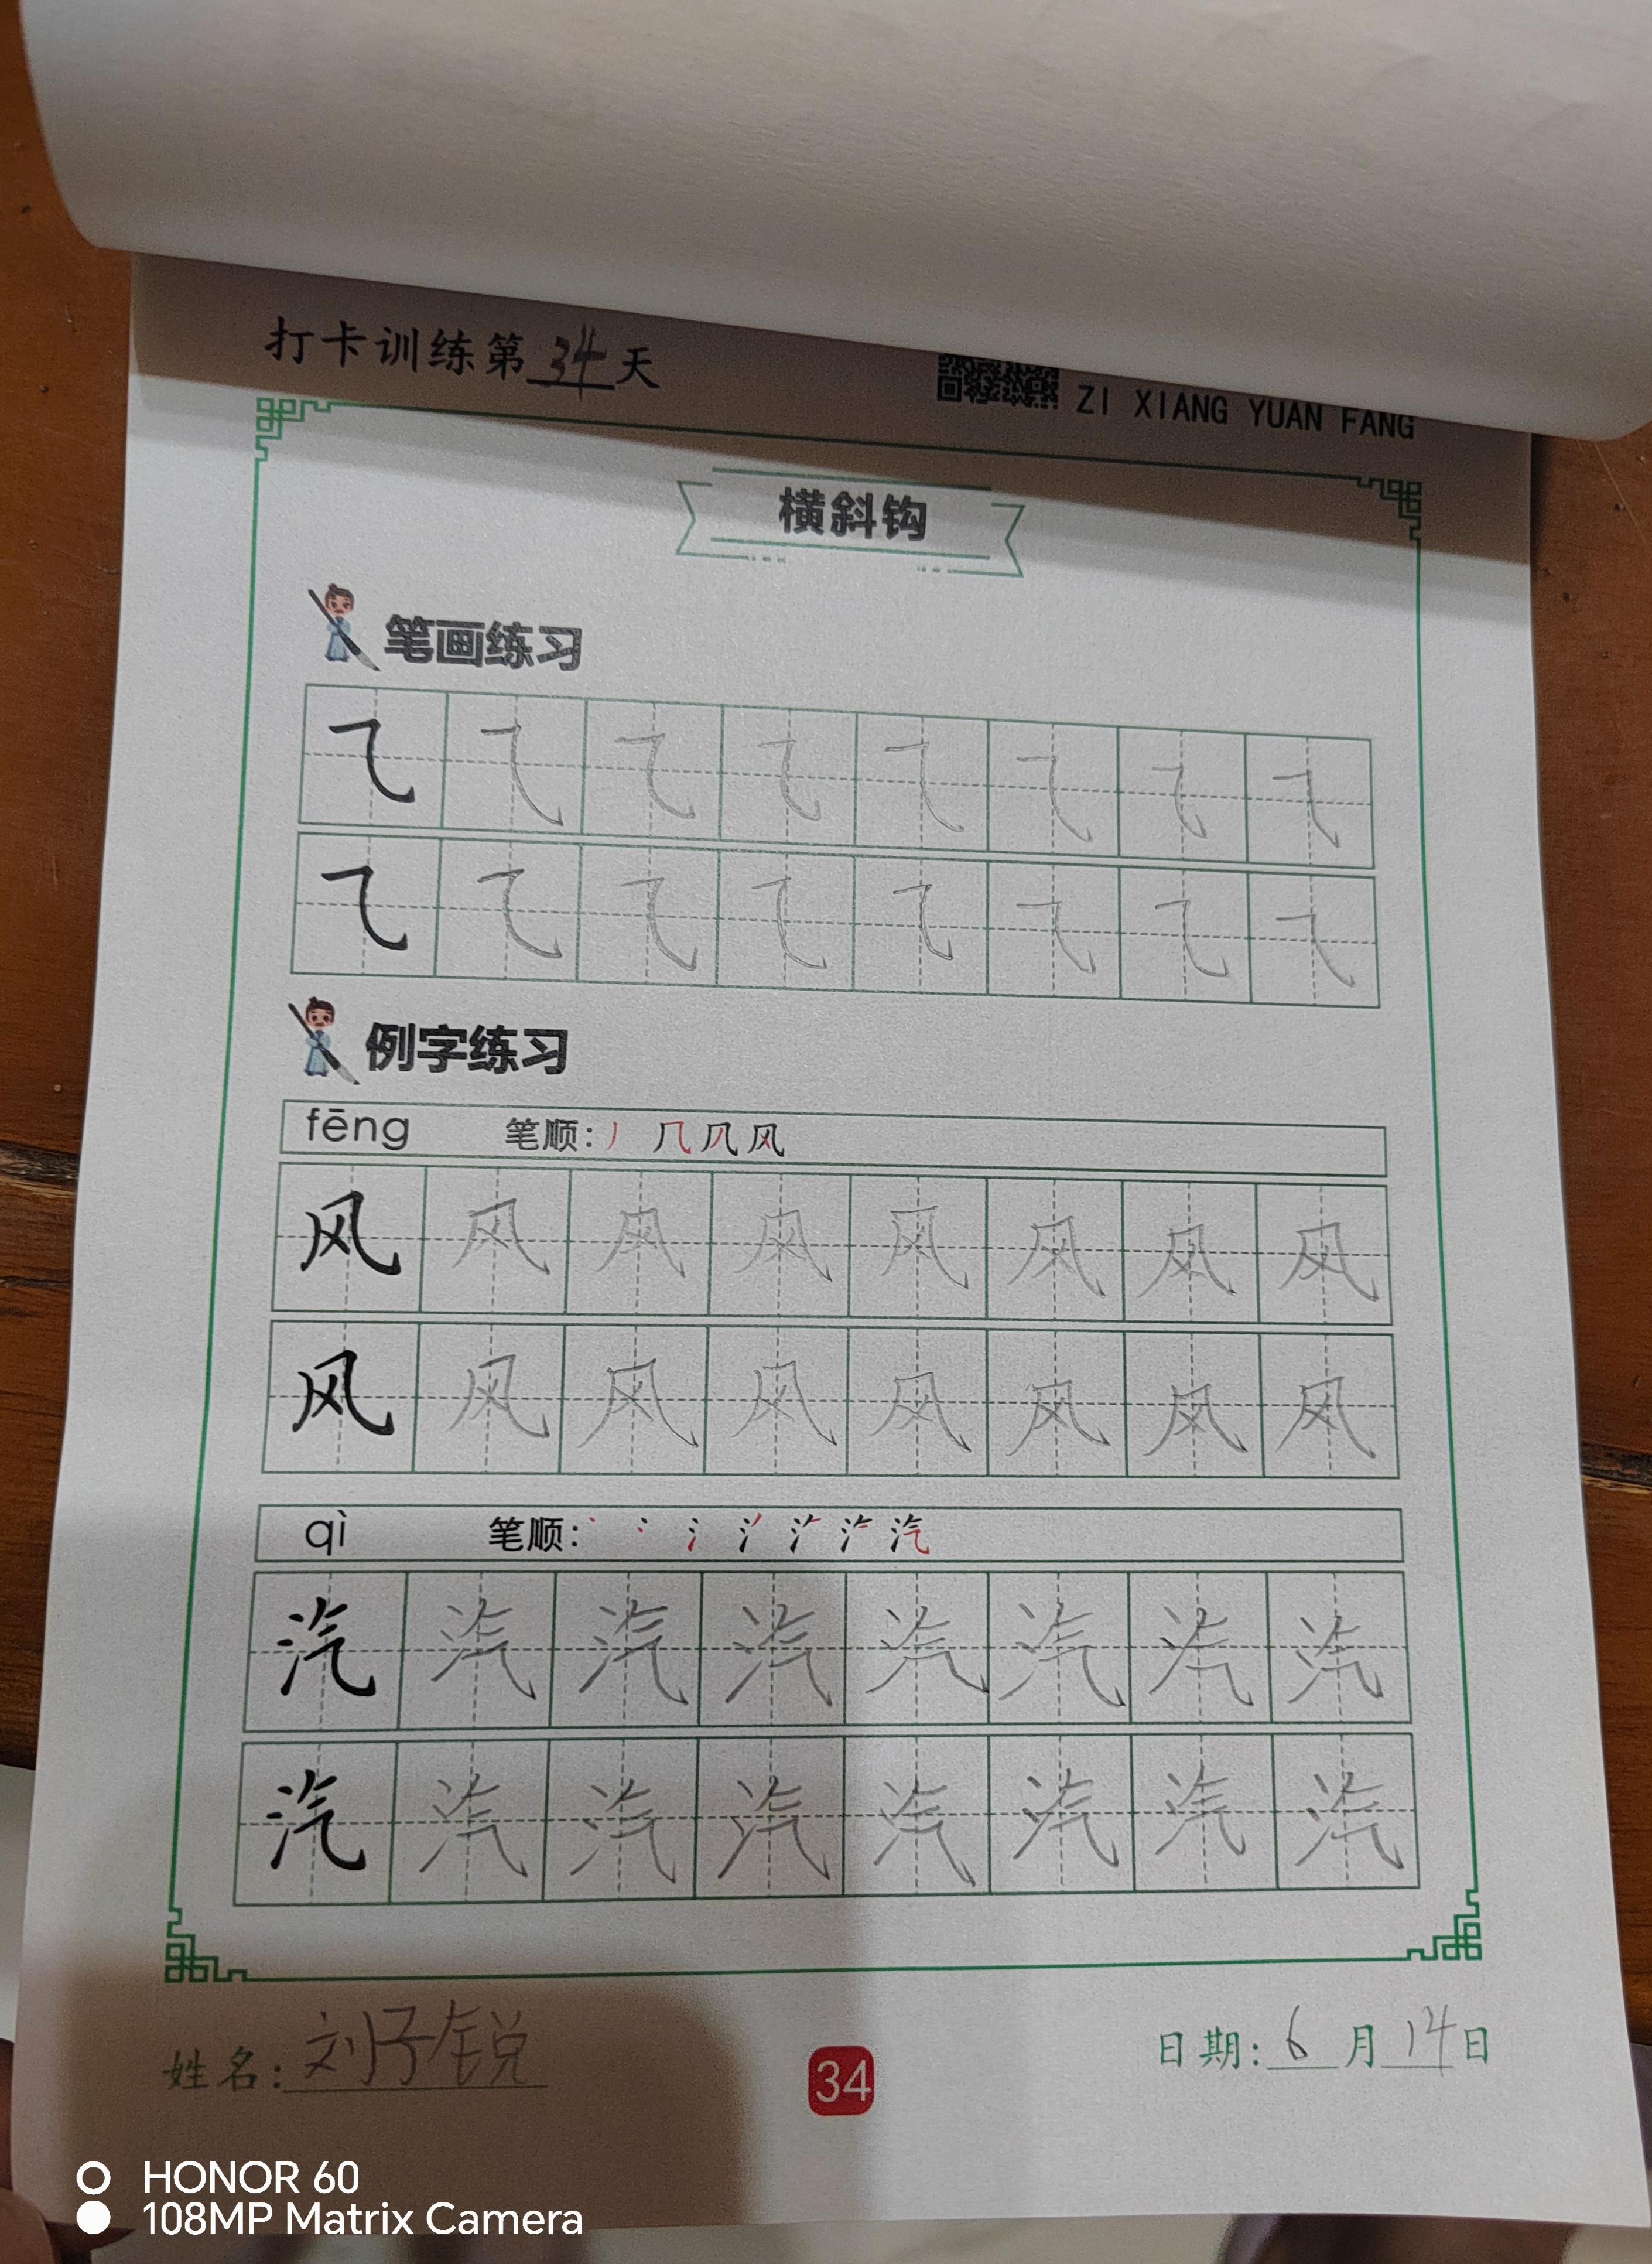 打卡训练第34天
ZI XIANG YUAN FANG
横斜钩
笔画练习
㇈ ㇈ ㇈ ㇈ ㇈ ㇈ ㇈ ㇈
㇈ ㇈ ㇈ ㇈ ㇈ ㇈ ㇈ ㇈
例字练习
fēng 笔顺: 丿 几 凡 风
风 风 风 风 风 风 风 风
风 风 风 风 风 风 风 风
qì 笔顺: 汽
汽 汽 汽 汽 汽 汽 汽 汽
汽 汽 汽 汽 汽 汽 汽 汽
姓名: 刘子锐
34
日期: 6月14日
HONOR 60
108MP Matrix Camera